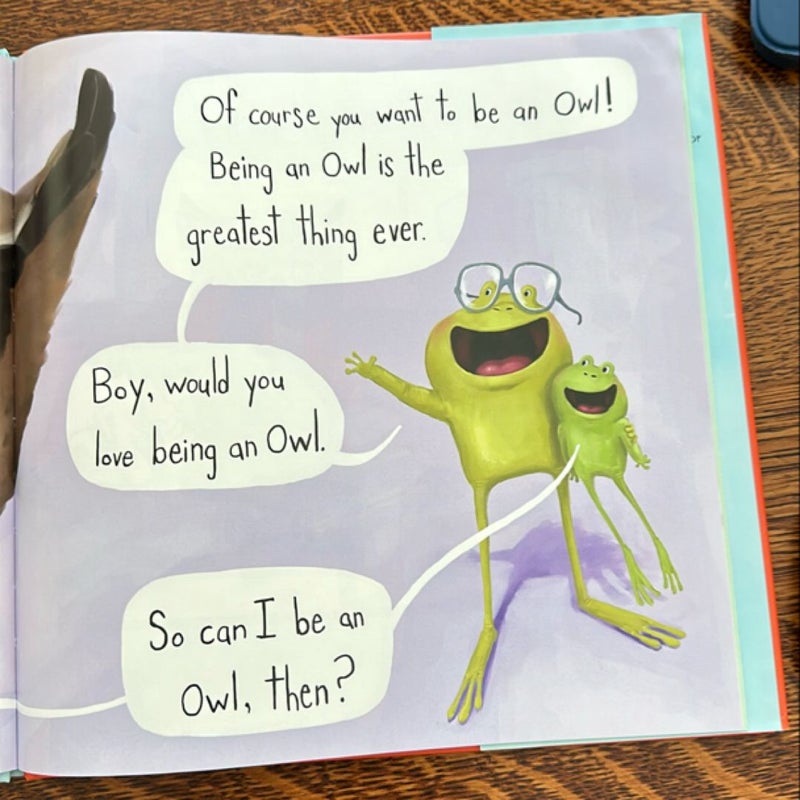 Of course you want to be an Owl!
Being an Owl is the
greatest thing ever.
Boy, would you
love being an Owl.
So can I be an
Owl, then?